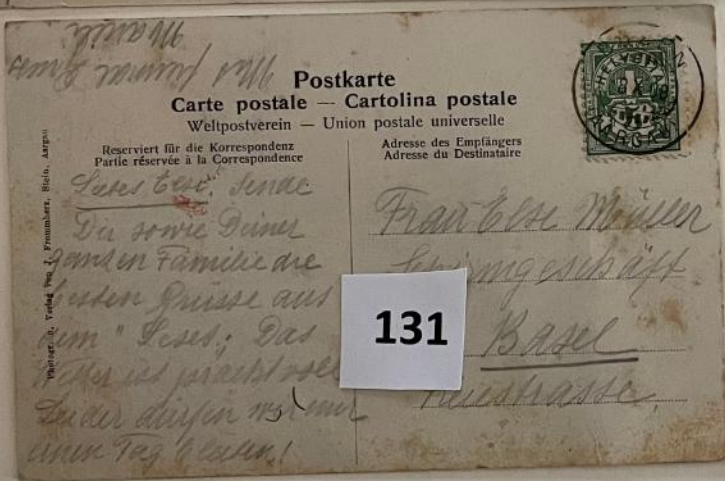 Postkarte
Carte postale — Cartolina postale
Weltpostverein — Union postale universelle
Reserviert für die Korrespondenz
Partie réservée à la Correspondence
Adresse des Empfängers
Adresse du Destinataire
Photogr. u. Verlag von J. Frommherz, Stein, Aargau
HELVETIA
AARGAU
Else. Sende
Dir sowie Deiner
ganzen Familie die
besten Grüsse aus
Das
ist prachtvoll
Leider dürfen wir nur
einen Tag bleiben!
Mit
Frau Else Müller
Basel
131